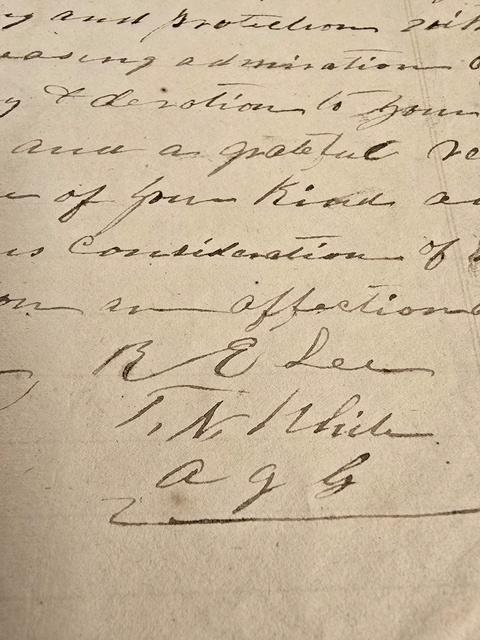 y and protection with
easing admiration o
y & devotion to your
and a grateful re
e of your kind an
us consideration of
on an affectiona
R E Lee
T. N. White
A G G